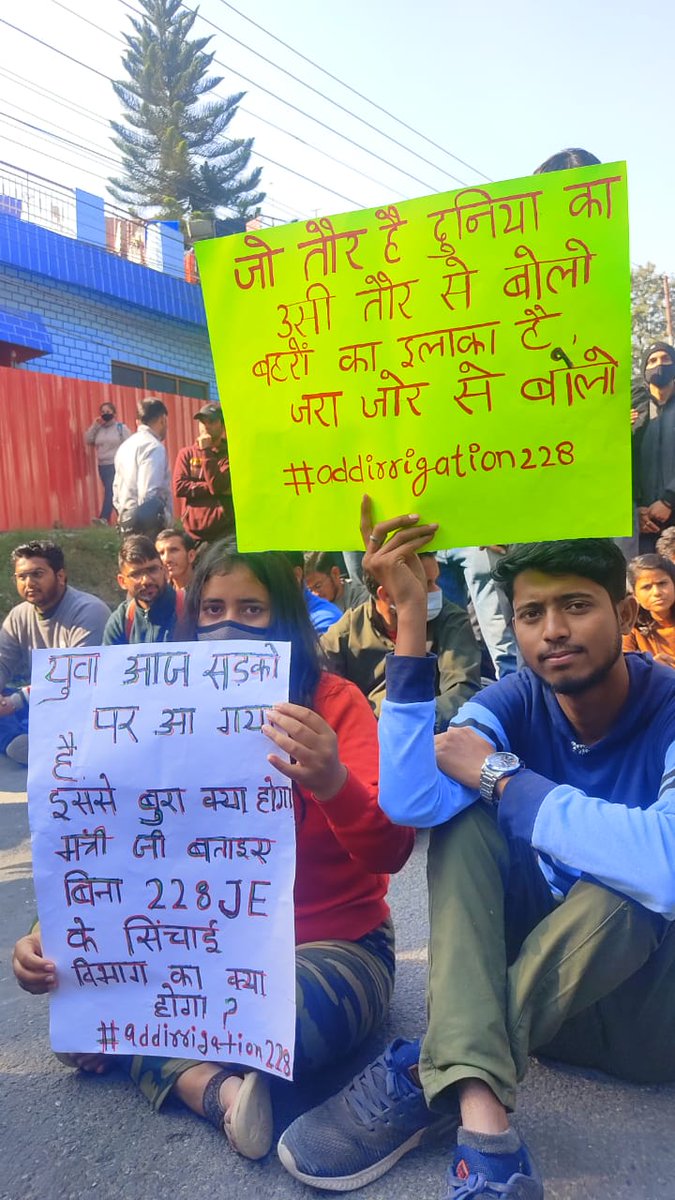 जो तौर है दुनिया का
उसी तौर से बोलो
बहरों का इलाका है,
जरा जोर से बोलो
#addirrigation228
युवा आज सड़को
पर आ गया
है
इससे बुरा क्या होगा
मंत्री जी बताइए
बिना 228 JE
के सिंचाई
विभाग का क्या
होगा ?
#addirrigation228